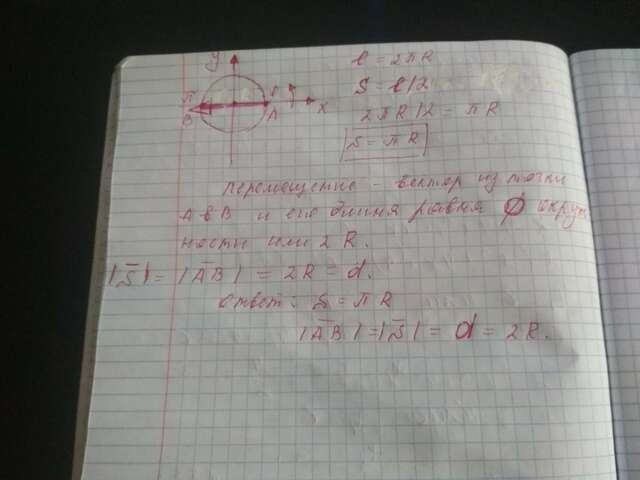 y
π
B
A
x
l = 2πR
S = l/2
2πR/2 = πR
S = πR
Перемещение - вектор из точки
А в В и его длина равна ∅ окруж
ности или 2R.
|S̅| = |A̅B̅| = 2R = d.
Ответ: S = πR
|A̅B̅| = |S̅| = d = 2R.